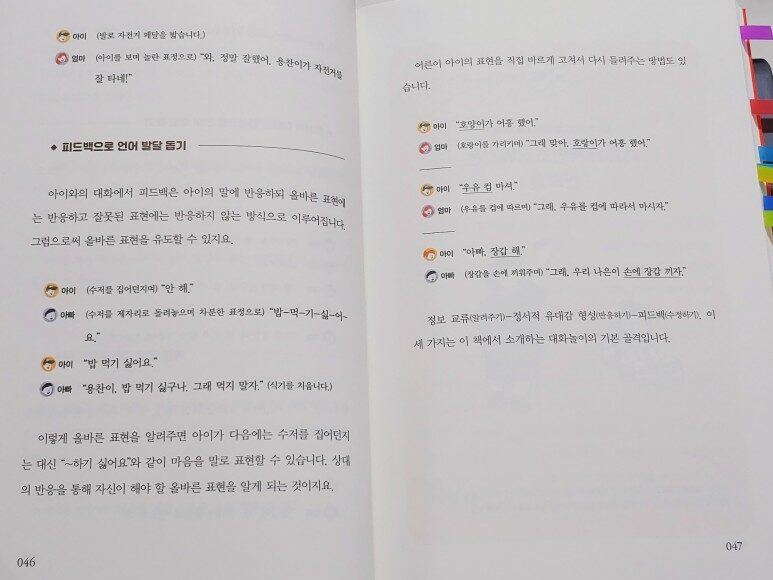 아이 (발로 자전거 페달을 밟습니다.)
엄마 (아이를 보며 놀란 표정으로) “와, 정말 잘했어. 용찬이가 자전거를
잘 타네!”
◆ 피드백으로 언어 발달 돕기
아이와의 대화에서 피드백은 아이의 말에 반응하되 올바른 표현에
는 반응하고 잘못된 표현에는 반응하지 않는 방식으로 이루어집니다.
그럼으로써 올바른 표현을 유도할 수 있지요.
아이 (수저를 집어던지며) “안 해.”
아빠 (수저를 제자리로 돌려놓으며 차분한 표정으로) “밥-먹-기-싫-어-
요.”
아이 “밥 먹기 싫어요.”
아빠 “용찬이, 밥 먹기 싫구나. 그래 먹지 말자.” (식기를 치웁니다.)
이렇게 올바른 표현을 알려주면 아이가 다음에는 수저를 집어던지
는 대신 “~하기 싫어요”와 같이 마음을 말로 표현할 수 있습니다. 상대
의 반응을 통해 자신이 해야 할 올바른 표현을 알게 되는 것이지요.
046
어른이 아이의 표현을 직접 바르게 고쳐서 다시 들려주는 방법도 있
습니다.
아이 “호양이가 어흥 했어.”
엄마 (호랑이를 가리키며) “그래 맞아, 호랑이가 어흥 했어.”
아이 “우유 컵 마셔.”
엄마 (우유를 컵에 따르며) “그래, 우유를 컵에 따라서 마시자.”
아이 “아빠, 장갑 해.”
아빠 (장갑을 손에 끼워주며) “그래, 우리 나은이 손에 장갑 끼자.”
정보 교류(알려주기)-정서적 유대감 형성(반응하기)-피드백(수정하기), 이
세 가지는 이 책에서 소개하는 대화놀이의 기본 골격입니다.
047